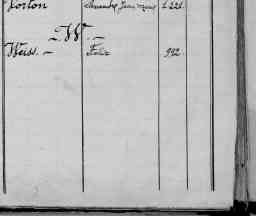 Horton Alexandre Jean Marie 1.221.
– W. –
Weiss. – Félix 992